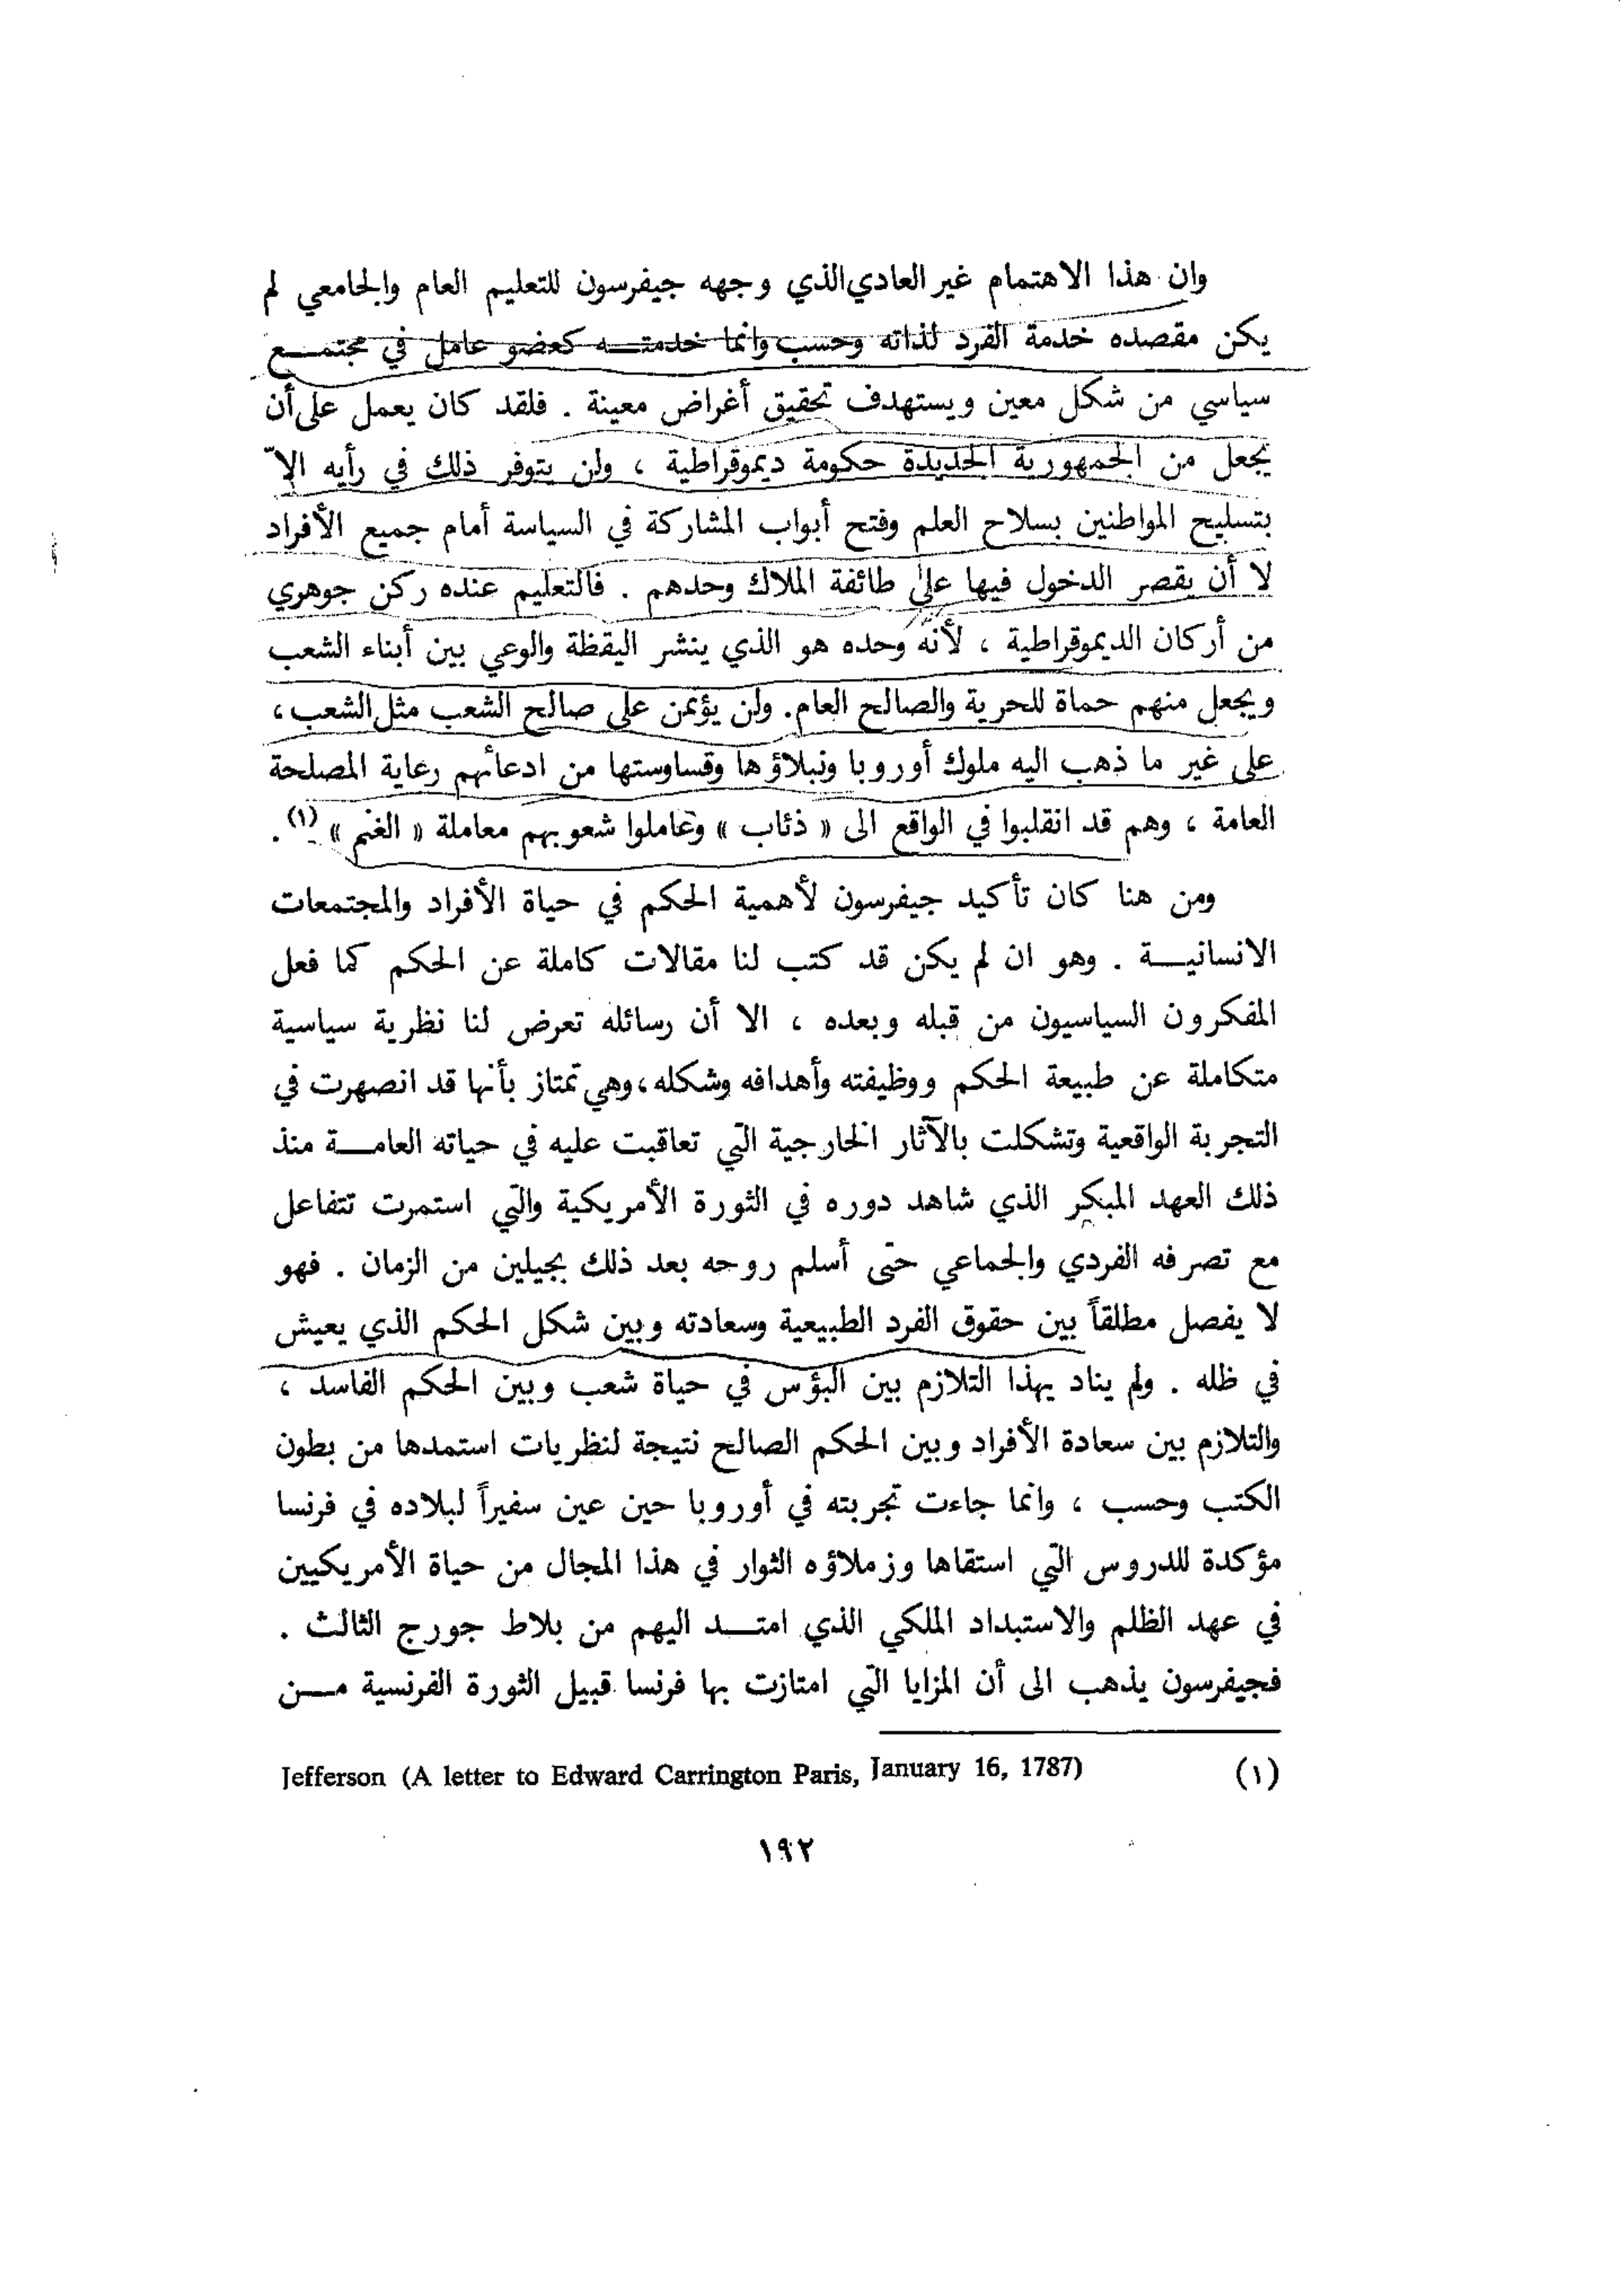 وان هذا الاهتمام غير العادي الذي وجهه جيفرسون للتعليم العام والجامعي لم
يكن مقصده خدمة الفرد لذاته وحسب وانما خدمتـــه كعضو عامل في مجتمــع
سياسي من شكل معين ويستهدف تحقيق أغراض معينة . فلقد كان يعمل على أن
يجعل من الجمهورية الجديدة حكومة ديموقراطية ، ولن يتوفر ذلك في رأيه الاّ
بتسليح المواطنين بسلاح العلم وفتح أبواب المشاركة في السياسة أمام جميع الأفراد
لا أن يقصر الدخول فيها على طائفة الملاك وحدهم . فالتعليم عنده ركن جوهري
من أركان الديموقراطية ، لأنه وحده هو الذي ينشر اليقظة والوعي بين أبناء الشعب
ويجعل منهم حماة للحرية والصالح العام. ولن يؤتمن على صالح الشعب مثل الشعب ،
على غير ما ذهب اليه ملوك أوروبا ونبلاؤها وقساوستها من ادعائهم رعاية المصلحة
العامة ، وهم قد انقلبوا في الواقع الى « ذئاب » وعاملوا شعوبهم معاملة « الغنم » (١) .
ومن هنا كان تأكيد جيفرسون لأهمية الحكم في حياة الأفراد والمجتمعات
الانسانيــة . وهو ان لم يكن قد كتب لنا مقالات كاملة عن الحكم كما فعل
المفكرون السياسيون من قبله وبعده ، الا أن رسائله تعرض لنا نظرية سياسية
متكاملة عن طبيعة الحكم ووظيفته وأهدافه وشكله ، وهي تمتاز بأنها قد انصهرت في
التجربة الواقعية وتشكلت بالآثار الخارجية التي تعاقبت عليه في حياته العامــة منذ
ذلك العهد المبكر الذي شاهد دوره في الثورة الأمريكية والتي استمرت تتفاعل
مع تصرفه الفردي والجماعي حتى أسلم روحه بعد ذلك بجيلين من الزمان . فهو
لا يفصل مطلقاً بين حقوق الفرد الطبيعية وسعادته وبين شكل الحكم الذي يعيش
في ظله . ولم يناد بهذا التلازم بين البؤس في حياة شعب وبين الحكم الفاسد ،
والتلازم بين سعادة الأفراد وبين الحكم الصالح نتيجة لنظريات استمدها من بطون
الكتب وحسب ، وانما جاءت تجربته في أوروبا حين عين سفيراً لبلاده في فرنسا
مؤكدة للدروس التي استقاها وزملاؤه الثوار في هذا المجال من حياة الأمريكيين
في عهد الظلم والاستبداد الملكي الذي امتــد اليهم من بلاط جورج الثالث .
فجيفرسون يذهب الى أن المزايا التي امتازت بها فرنسا قبيل الثورة الفرنسية مــن
(١) Jefferson (A letter to Edward Carrington Paris, January 16, 1787)
١٩٢